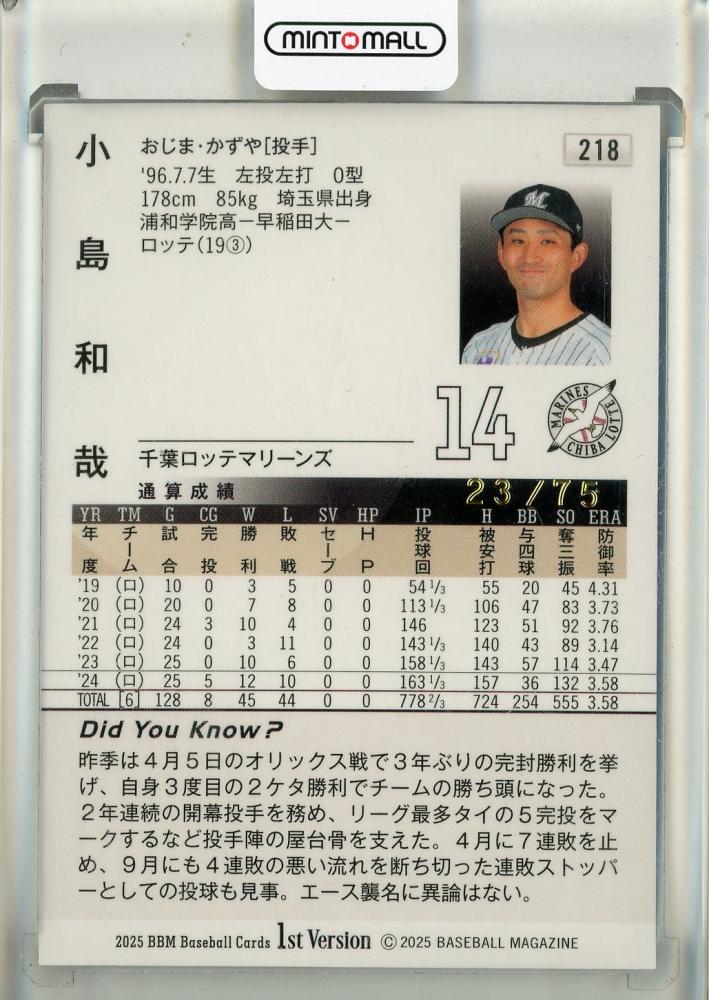 MINTOMALL
小島和哉
おじま・かずや[投手]
218
'96.7.7生 左投左打 O型
178cm 85kg 埼玉県出身
浦和学院高ー早稲田大ー
ロッテ(19③)
M
14
MARINES
CHIBA LOTTE
千葉ロッテマリーンズ
通算成績 23/75
YR TM G CG W L SV HP IP H BB SO ERA
年度 チーム 試合 完投 勝利 敗戦 セーブ HP 投球回 被安打 与四球 奪三振 防御率
'19 (ロ) 10 0 3 5 0 0 54 1/3 55 20 45 4.31
'20 (ロ) 20 0 7 8 0 0 113 1/3 106 47 83 3.73
'21 (ロ) 24 3 10 4 0 0 146 123 51 92 3.76
'22 (ロ) 24 0 3 11 0 0 143 1/3 140 43 89 3.14
'23 (ロ) 25 0 10 6 0 0 158 1/3 143 57 114 3.47
'24 (ロ) 25 5 12 10 0 0 163 1/3 157 36 132 3.58
TOTAL [6] 128 8 45 44 0 0 778 2/3 724 254 555 3.58
Did You Know?
昨季は4月5日のオリックス戦で3年ぶりの完封勝利を挙
げ、自身3度目の2ケタ勝利でチームの勝ち頭になった。
2年連続の開幕投手を務め、リーグ最多タイの5完投をマ
ークするなど投手陣の屋台骨を支えた。4月に7連敗を止
め、9月にも4連敗の悪い流れを断ち切った連敗ストッパ
ーとしての投球も見事。エース襲名に異論はない。
2025 BBM Baseball Cards 1st Version ©2025 BASEBALL MAGAZINE